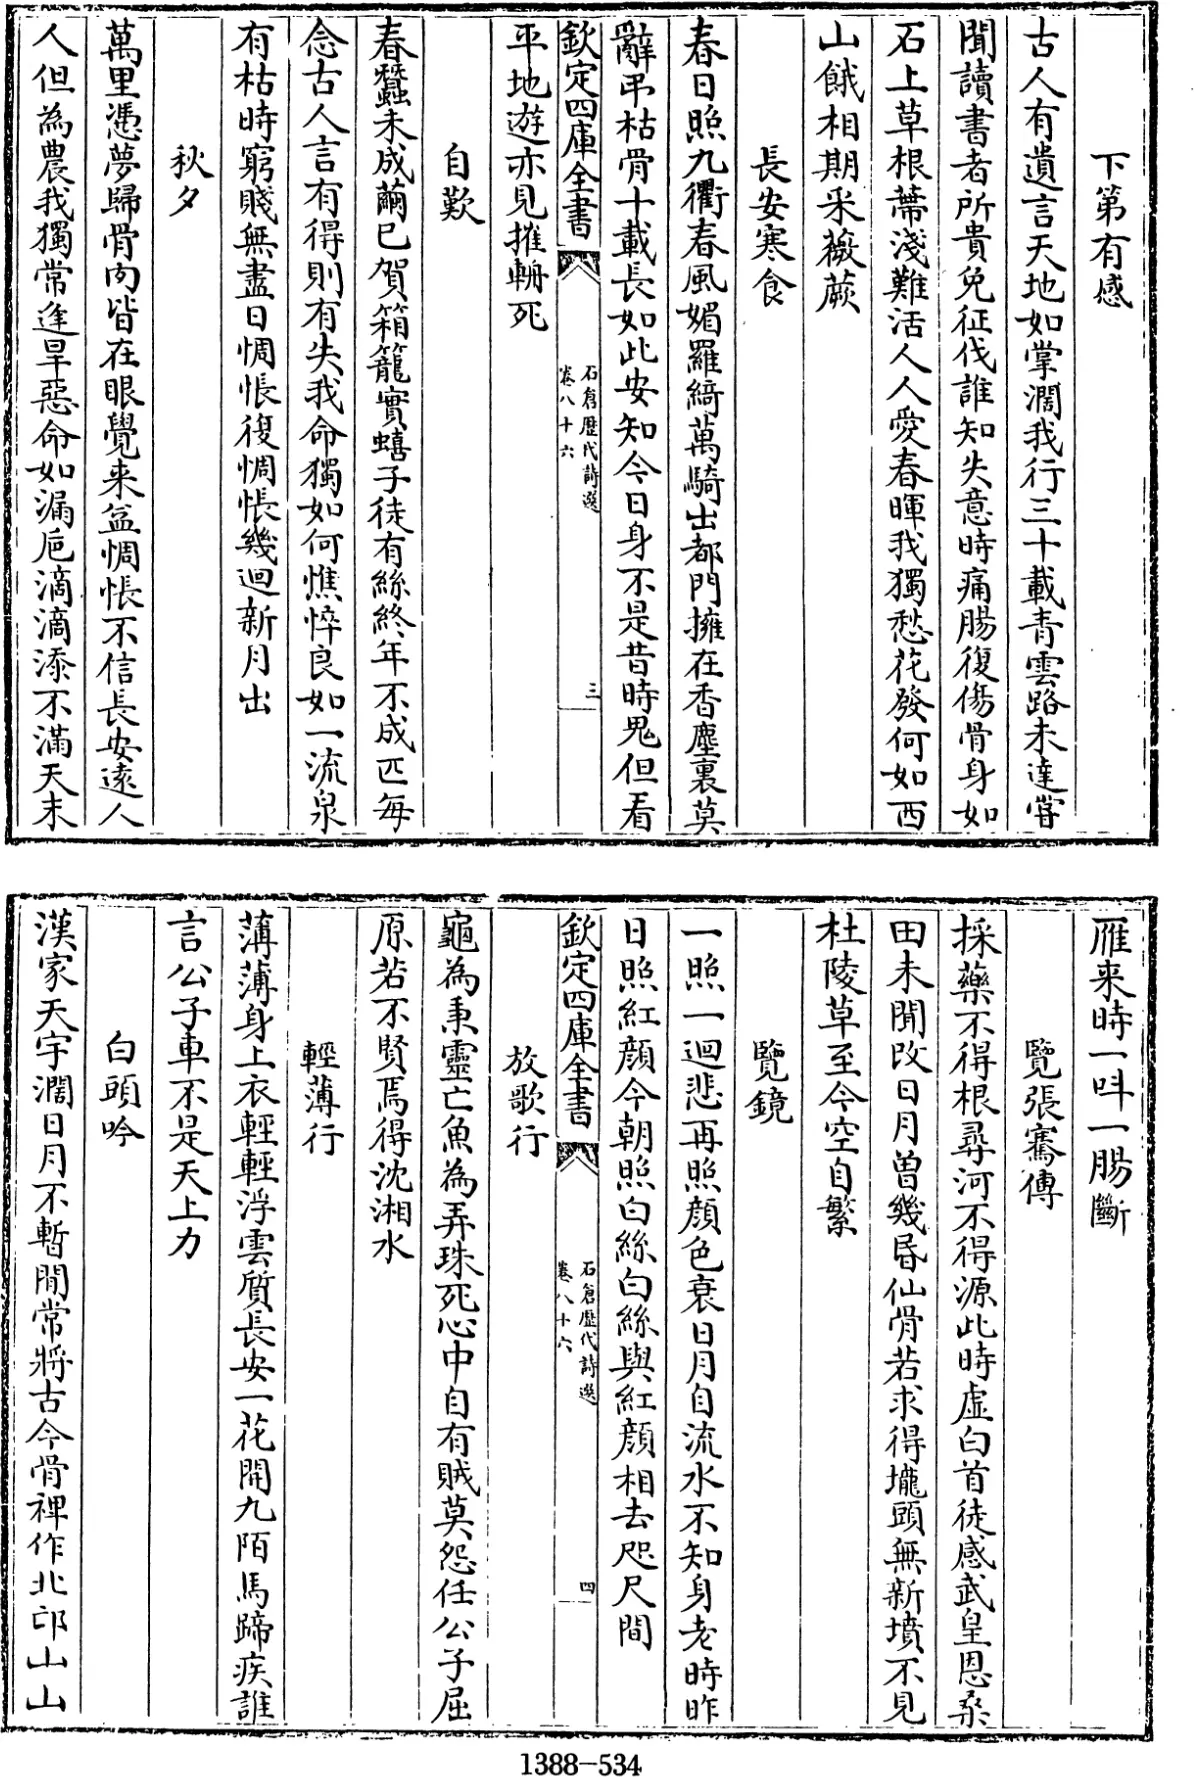 下第有感
古人有遺言天地如掌濶我行三十載青雲路未達嘗
聞讀書者所貴免征伐誰知失意時痛腸復傷骨身如
石上草根蔕淺難活人人愛春暉我獨愁花發何如西
山餓相期采薇蕨
長安寒食
春日照九衢春風媚羅綺萬騎出都門擁在香塵裏莫
辭弔枯骨十載長如此安知今日身不是昔時鬼但看
欽定四庫全書
石倉歷代詩選
卷八十六
三
平地遊亦見摧輈死
自歎
春蠶未成繭已賀箱籠實蟢子徒有絲終年不成匹每
念古人言有得則有失我命獨如何憔悴良如一流泉
有枯時窮賤無盡日惆悵復惆悵幾迴新月出
秋夕
萬里憑夢歸骨肉皆在眼覺来益惆悵不信長安遠人
人但為農我獨常逢旱惡命如漏巵滴滴添不滿天末
雁来時一呌一腸斷
覽張騫傳
採藥不得根尋河不得源此時虛白首徒感武皇恩桑
田未聞改日月曽幾昏仙骨若求得壠頭無新墳不見
杜陵草至今空自繁
覽鏡
一照一迴悲再照顔色衰日月自流水不知身老時昨
日照紅顔今朝照白絲白絲與紅顔相去咫尺間
欽定四庫全書
石倉歷代詩選
卷八十六
四
放歌行
龜為秉靈亡魚為弄珠死心中自有賊莫怨任公子屈
原若不賢焉得沈湘水
輕薄行
薄薄身上衣輕輕浮雲質長安一花開九陌馬蹄疾誰
言公子車不是天上力
白頭吟
漢家天宇濶日月不暫閒常將古今骨裨作北邙山山
1388-534